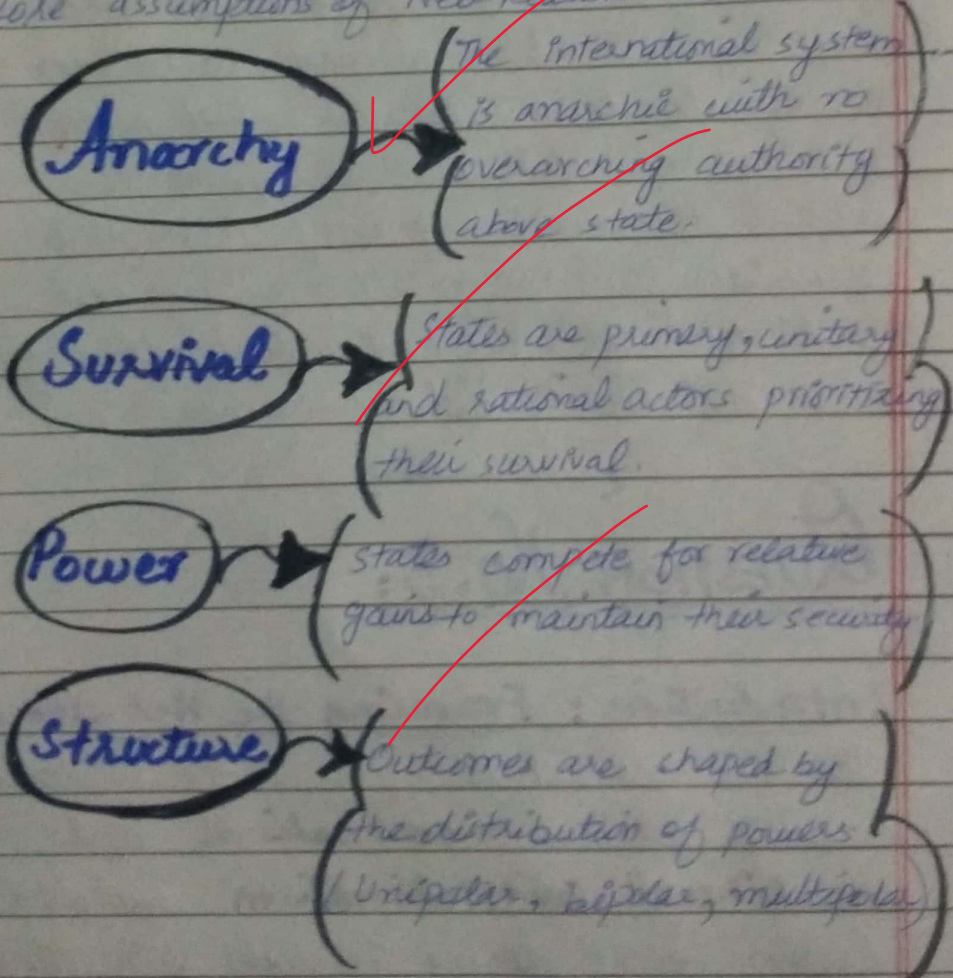 core assumptions of Neo
Anarchy
The international system
is anarchic with no
overarching authority
above state.
Survival
States are primary, unitary
and rational actors prioritizing
their survival.
Power
States compete for relative
gains to maintain their security
Structure
Outcomes are shaped by
the distribution of powers
(Unipolar, bipolar, multipolar)